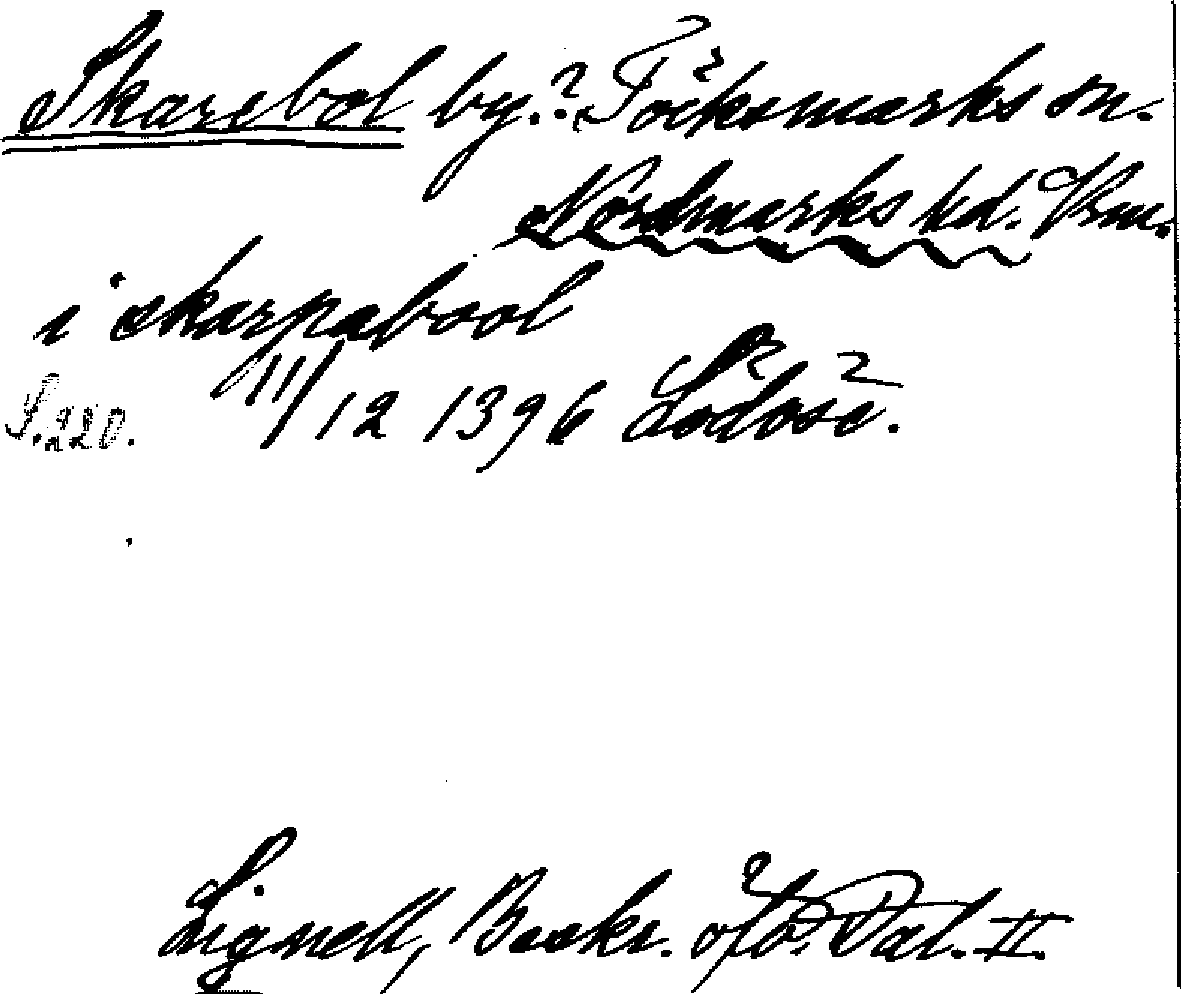 Skarebol by.? Töcksmarks sn.
Nordmarks hd. Vrm.
i skarpabool
S. 220. 11/12 1396 Lödöse.
Lignell, Beskr. öfv. Dal. II.